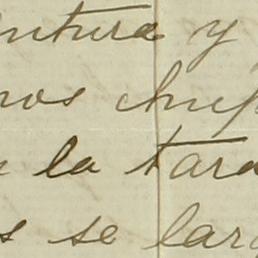 ntura y
nos chup
la tard
s se larg